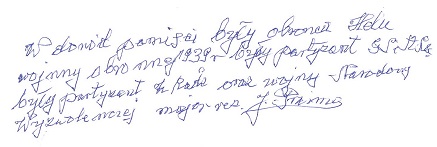 W dowód pamięci były obrońca Helu
wojny obronnej 1939r były partyzant
były partyzant oraz wojny Narodowo
Wyzwoleńczej major rez. J.